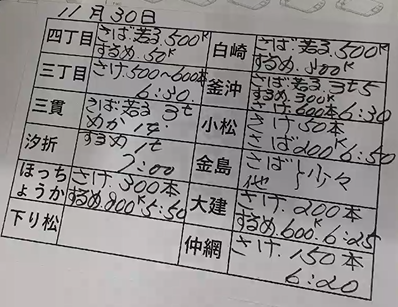 11月30日
四丁目
さば.若子.500K
するめ.50K
三丁目
さけ.500〜600本
6:30
三貫
さば若子3t
めか1本.
汐折
するめ1t
7:00
ほっちょうか
さけ.300本
するめ.800K 5:50
下り松
白崎
さば.若子.500K
するめ.300K
釜沖
さば.若子.3t5
するめ.300K
さけ600本6:30
小松
さけ.50本
さば.200 6:50
金島
さば 少々
他
大建
さけ.200本
するめ.600K 6:25
仲網
さけ.150本
6:20